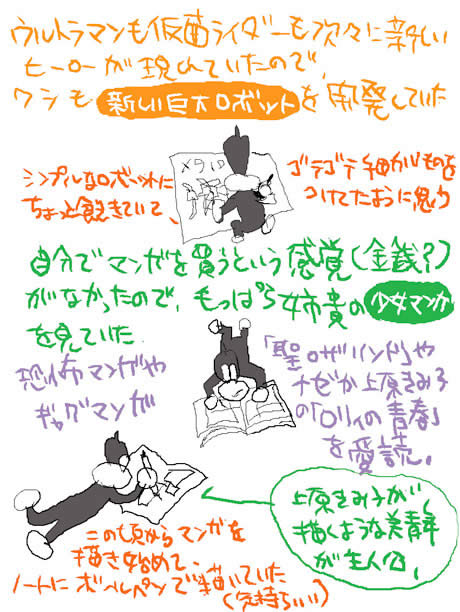 ウルトラマンも仮面ライダーも次々に新しい
ヒーローが現れていたので、
ワシも新しい巨大ロボットを開発していた
シンプルなロボットに
ちょっと飽きていて、
ゴテゴテ細かいものを
つけてたように思う
自分でマンガを買うという感覚(金銭?)
がなかったので、もっぱら姉貴の少女マンガ
を見ていた
恐怖マンガや
ギャグマンガ
「聖ロザリンド」や
ナゼか上原きみ子
の「ロリィの青春」
を愛読。
この頃からマンガを
描き始めて、
ノートにボールペンで描いていた
(気持ちいい)
上原きみ子が、
描くような美青年
が主人公。